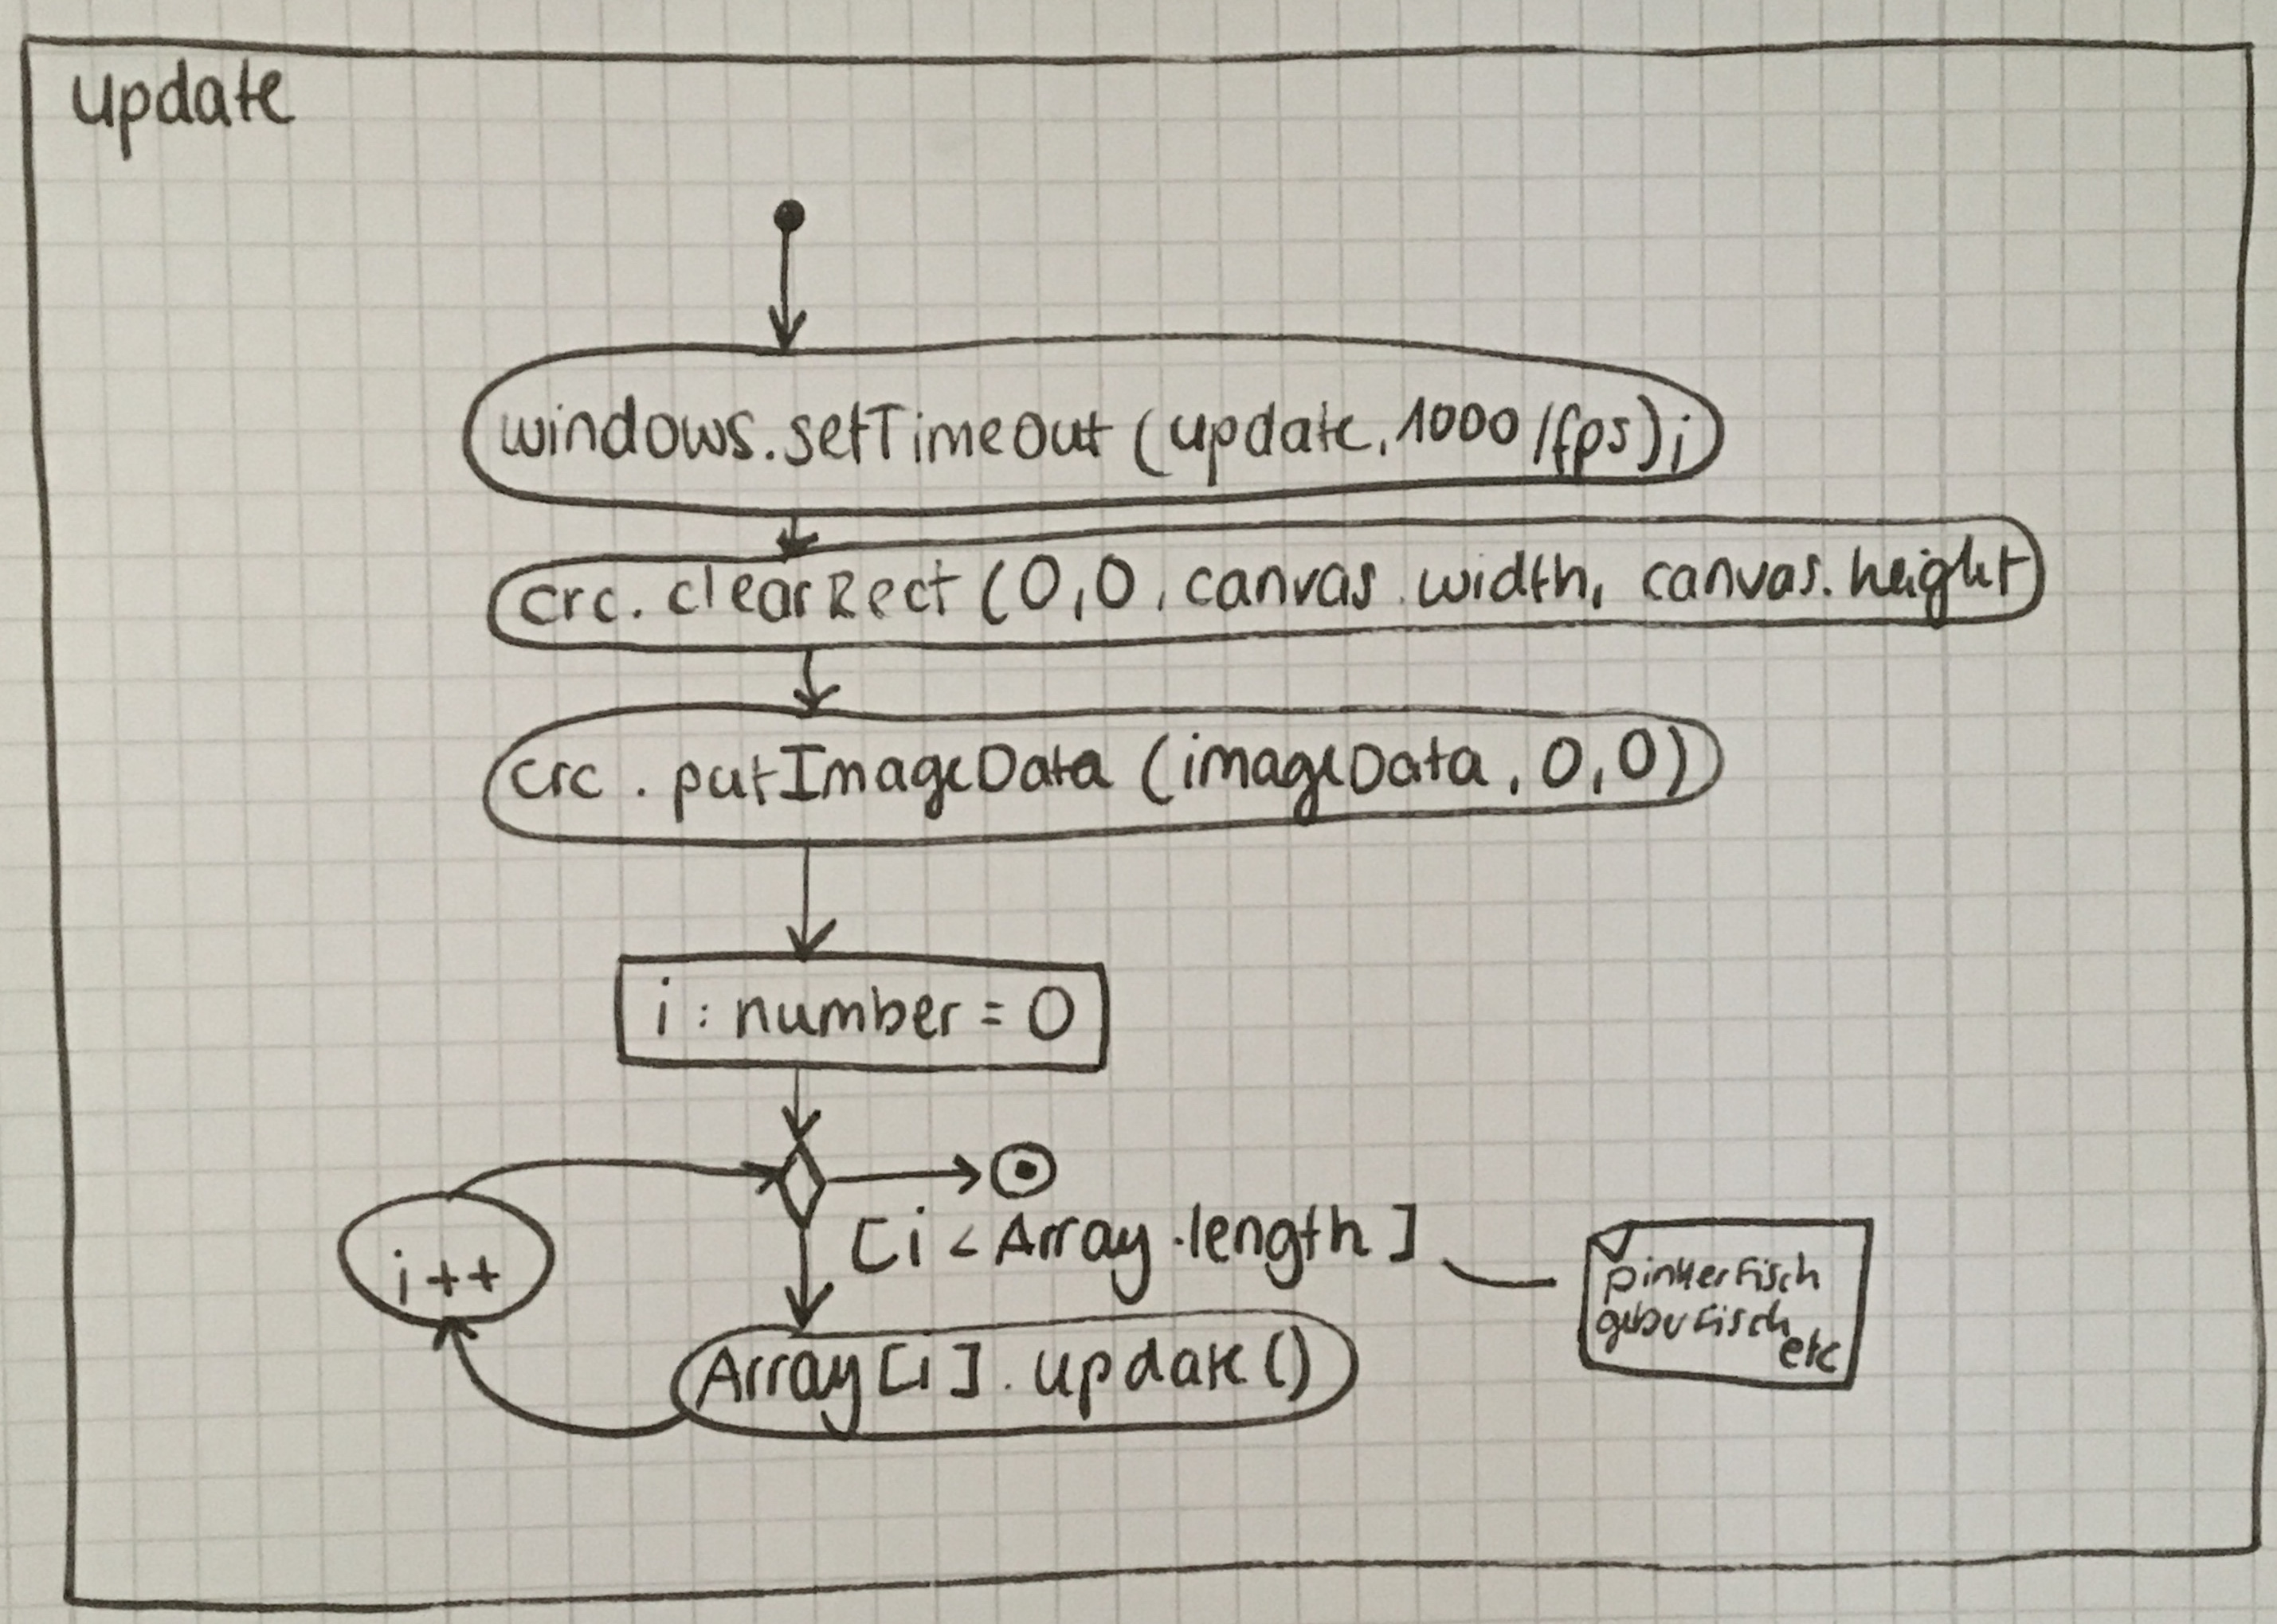 update
windows.setTimeOut (update, 1000/fps);
crc. clearRect (0,0, canvas.width, canvas.height
crc. putImageData (imageData, 0,0)
i : number = 0
[i < Array.length]
i++
pinkerFisch
gelberFisch
etc
Array[i]. update()